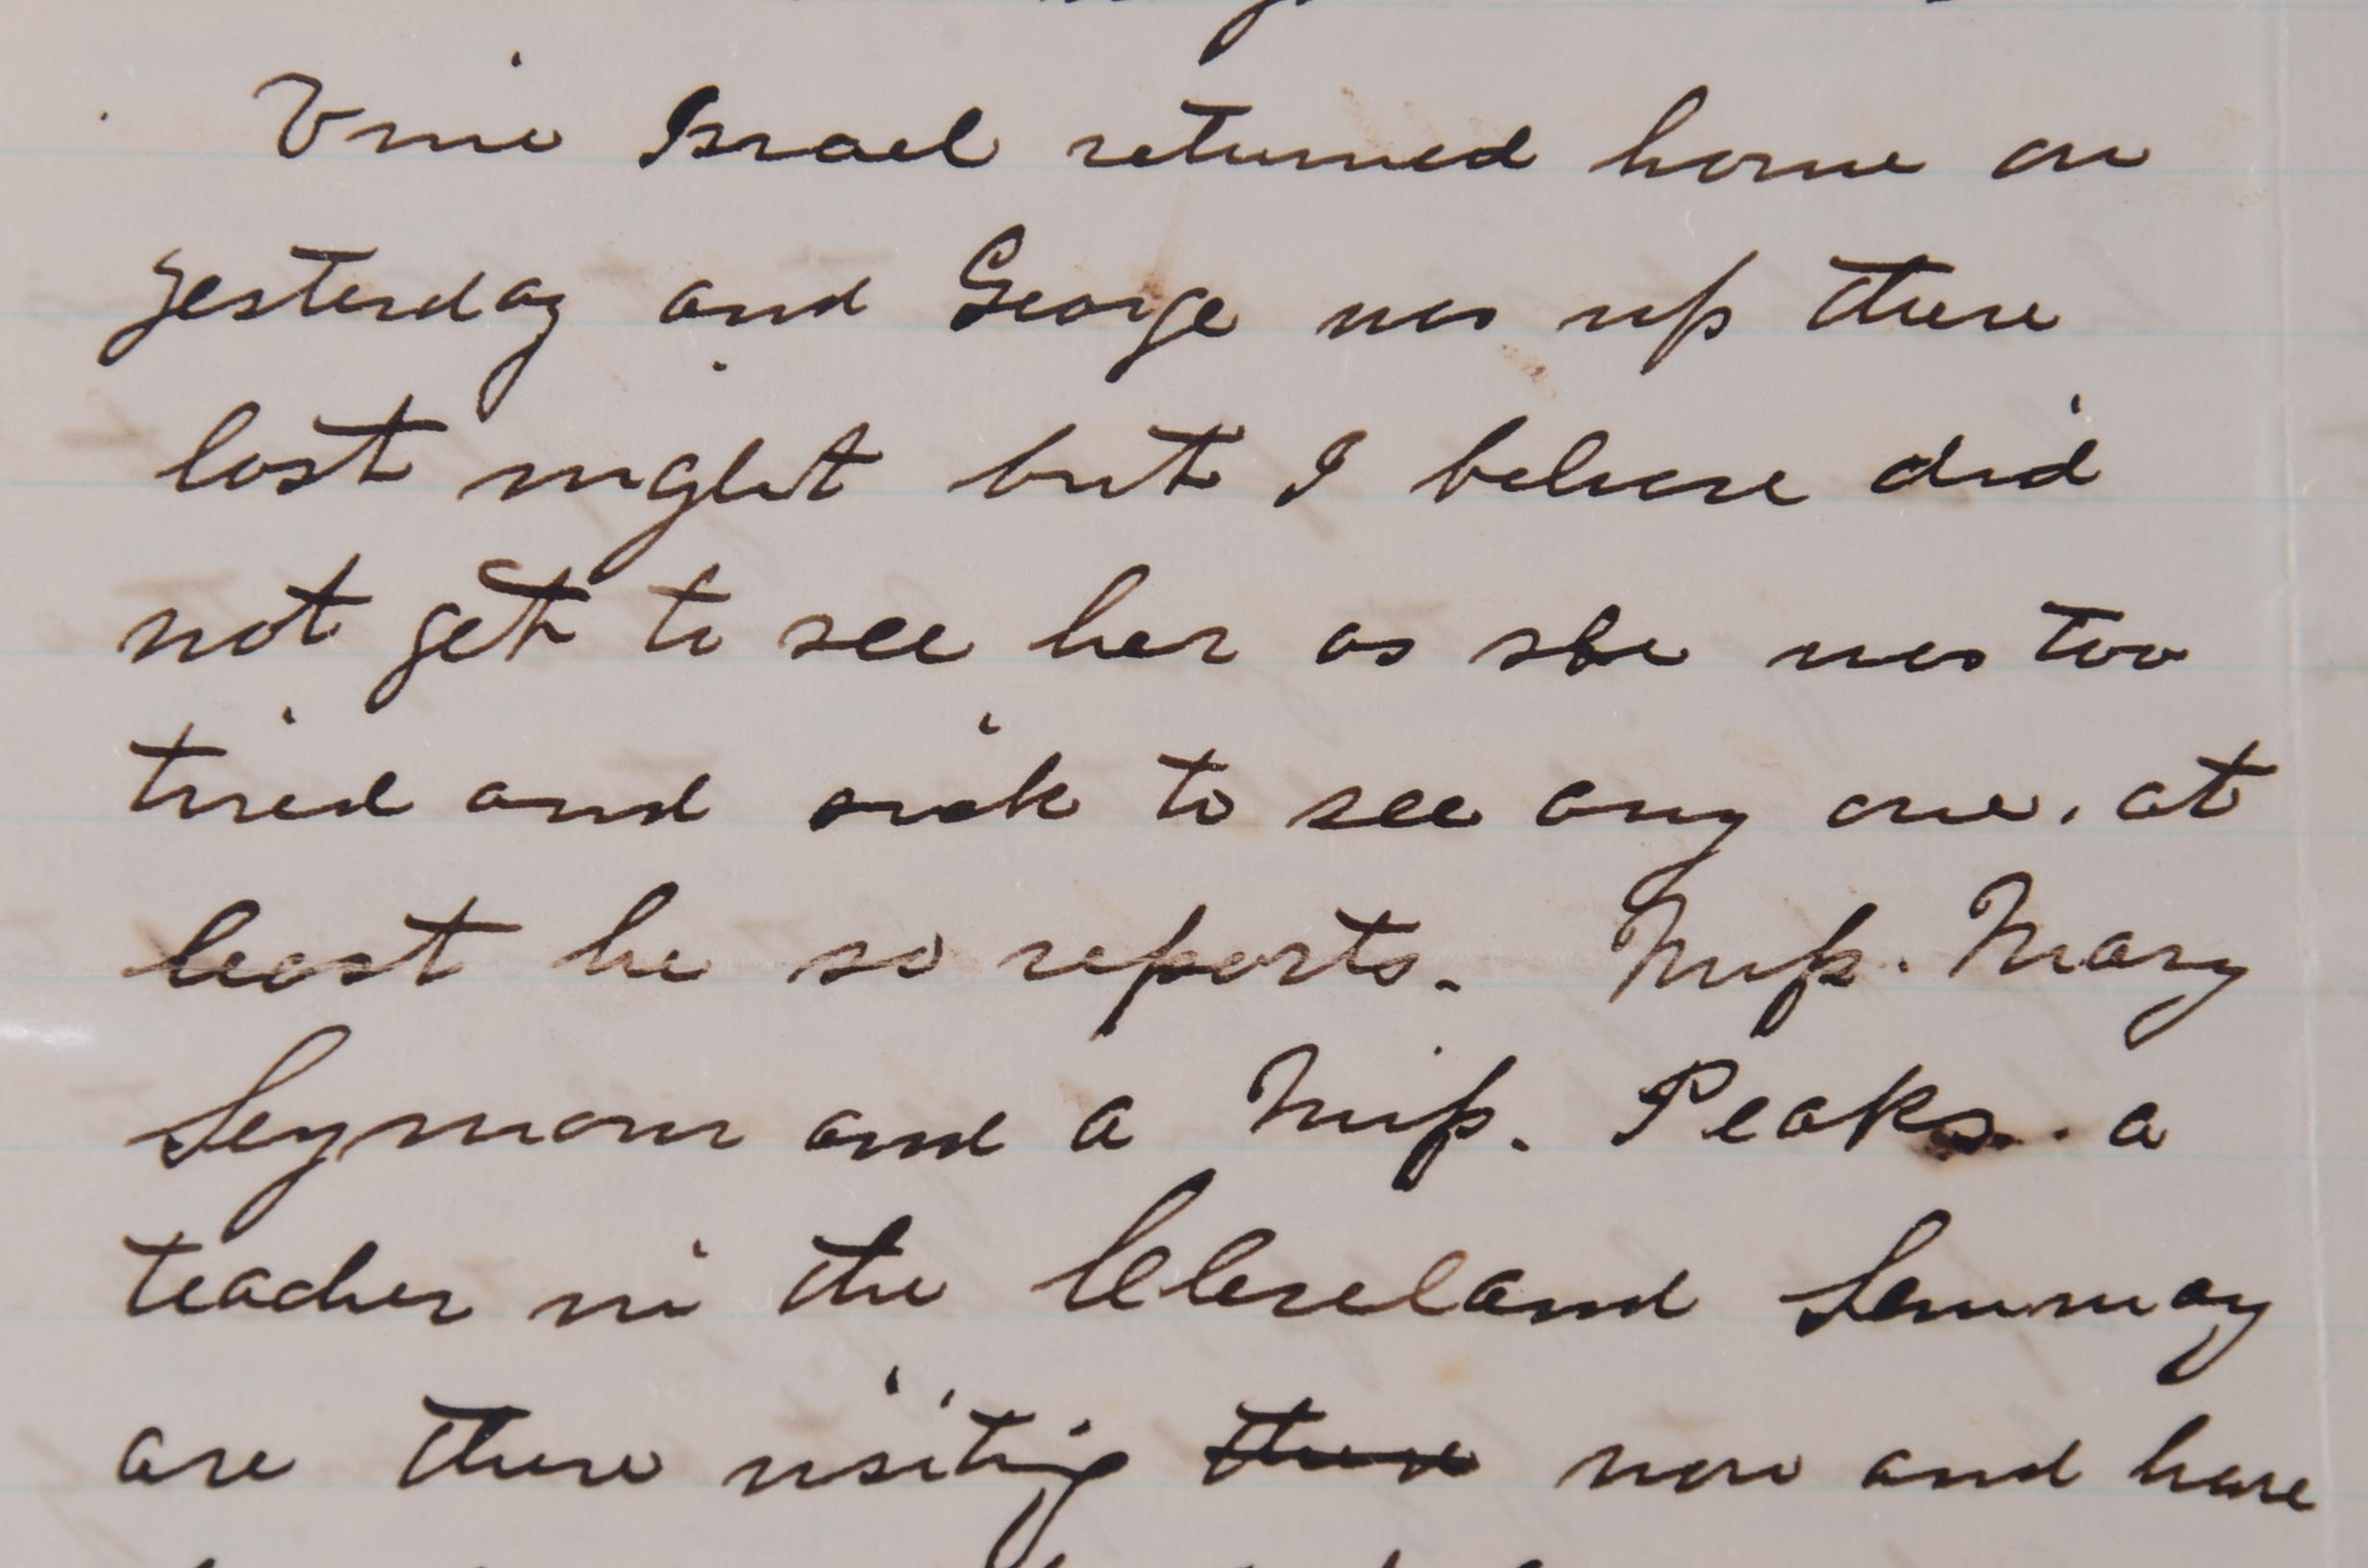 Vinie Israel returned home on
yesterday and George was up there
last night but I believe did
not get to see her as she was too
tired and sick to see any one. at
least he so reports. Miss. Mary
Seymour and a Miss. Peaks. a
teacher in the Cleveland Seminary
are there visiting there now and have